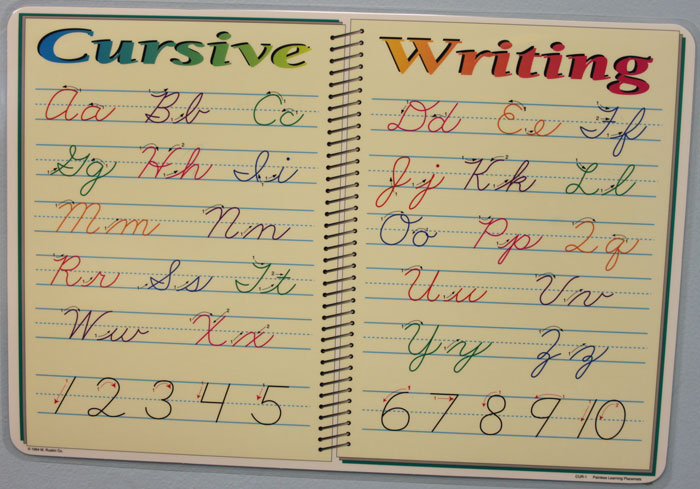 Cursive Writing
Aa Bb Cc Dd Ee Ff
Gg Hh Ii Jj Kk Ll
Mm Nn Oo Pp Qq
Rr Ss Tt Uu Vv
Ww Xx Yy Zz
1 2 3 4 5 6 7 8 9 10
CUR-1 Painless Learning Placemats